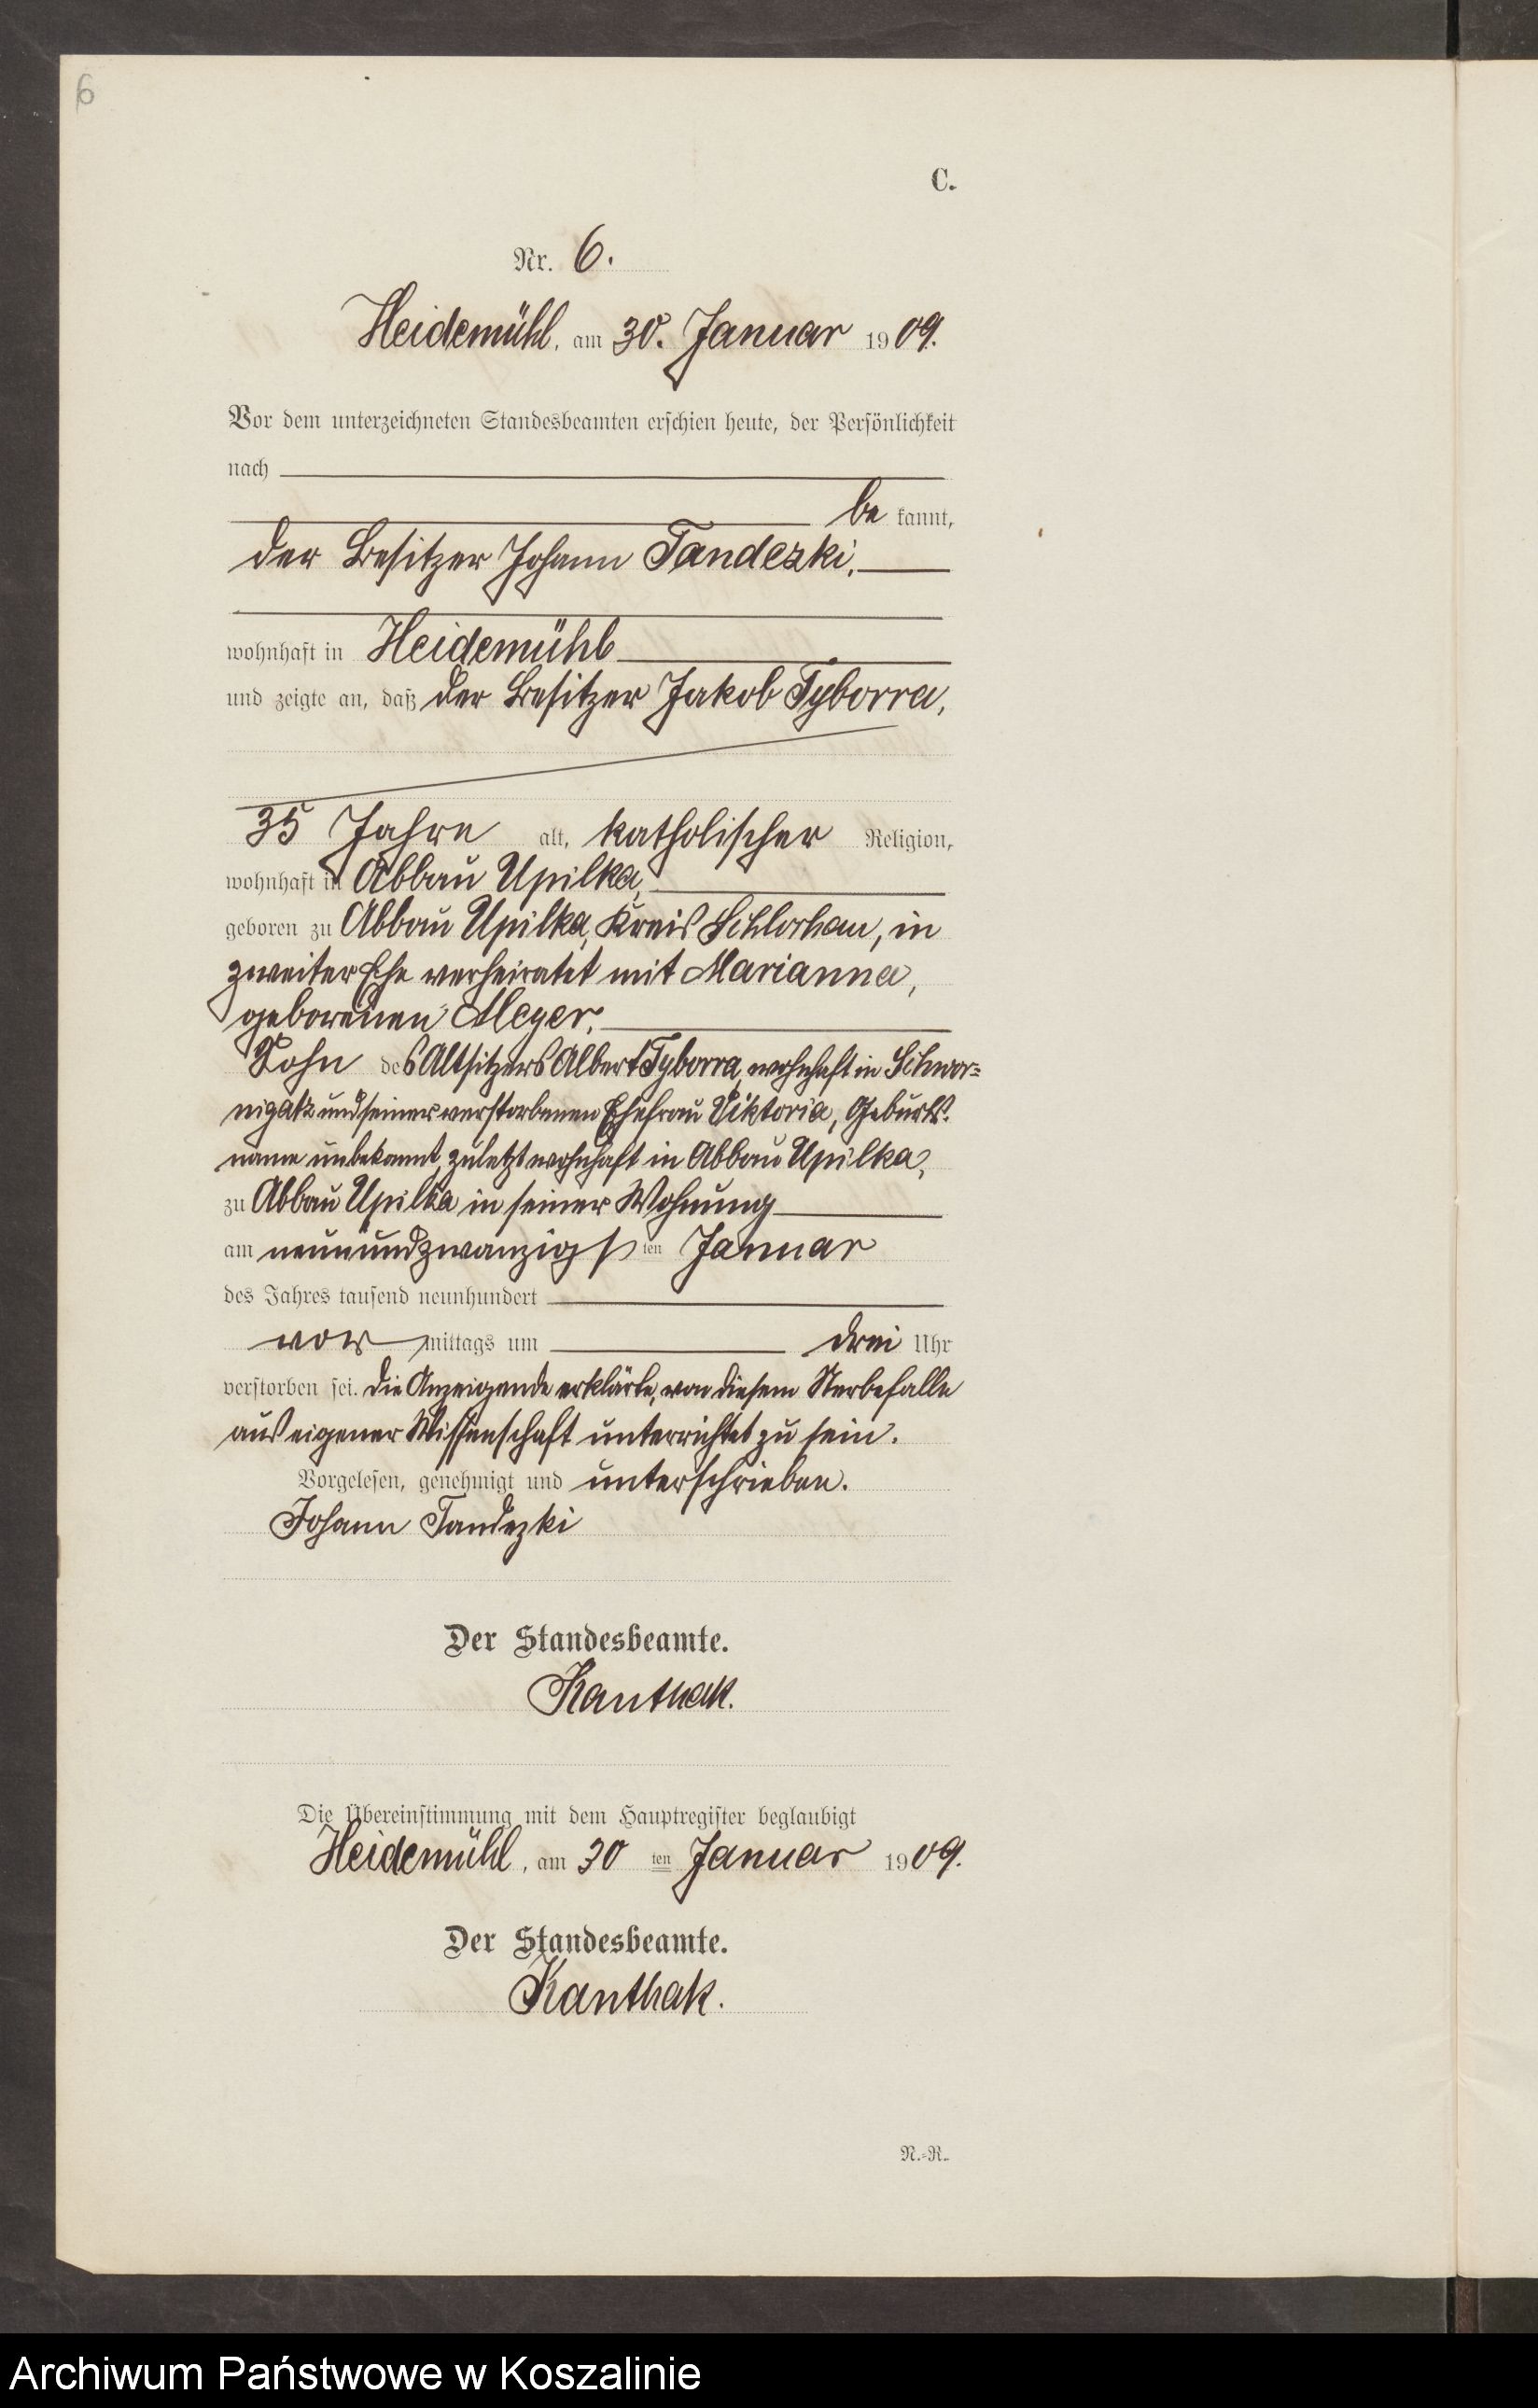 6
C.
Nr. 6.
Heidemühl, am 30. Januar 1909.
Vor dem unterzeichneten Standesbeamten erschien heute, der Persönlichkeit
nach
be kannt,
der Besitzer Johann Tandezki,
wohnhaft in Heidemühl
und zeigte an, daß der Besitzer Jakob Tyborra,
35 Jahre alt, katholischer Religion,
wohnhaft in Abbau Upilka,
geboren zu Abbau Upilka, Kreis Schlochau, in
zweiter Ehe verheiratet mit Marianna,
geborenen Meyer,
Sohn des Altsitzers Albert Tyborra, wohnhaft in Schwor-
nigatz und seiner verstorbenen Ehefrau Viktoria, Geburts-
name unbekannt, zuletzt wohnhaft in Abbau Upilka,
zu Abbau Upilka in seiner Wohnung
am neunundzwanzigsten Januar
des Jahres tausend neunhundert
vor mittags um drei Uhr
verstorben sei. Die Anzeigende erklärte, von diesem Sterbefalle
aus eigener Wissenschaft unterrichtet zu sein.
Vorgelesen, genehmigt und unterschrieben.
Johann Tandezki
Der Standesbeamte.
Kanthak.
Die Übereinstimmung mit dem Hauptregister beglaubigt
Heidemühl, am 30 ten Januar 1909.
Der Standesbeamte.
Kanthak.
N.-R.
Archiwum Państwowe w Koszalinie